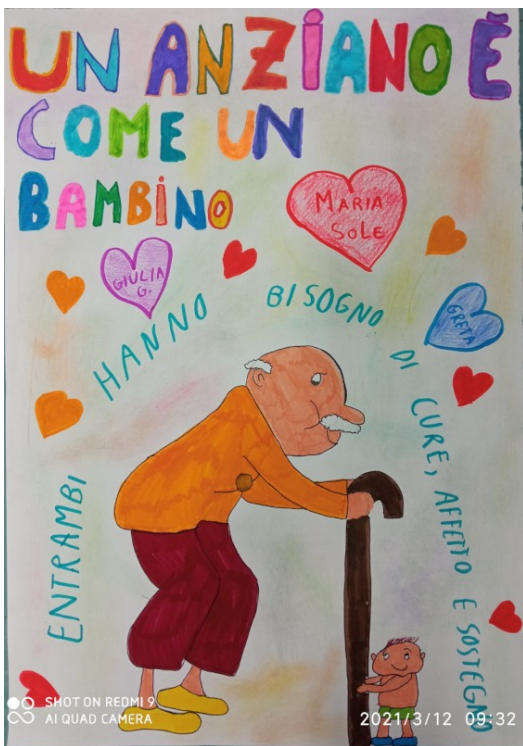 UN ANZIANO È
COME UN
BAMBINO
MARIA
SOLE
GIULIA
G.
GRETA
ENTRAMBI HANNO BISOGNO DI CURE, AFFETTO E SOSTEGNO
SHOT ON REDMI 9
AI QUAD CAMERA
2021/3/12 09:32